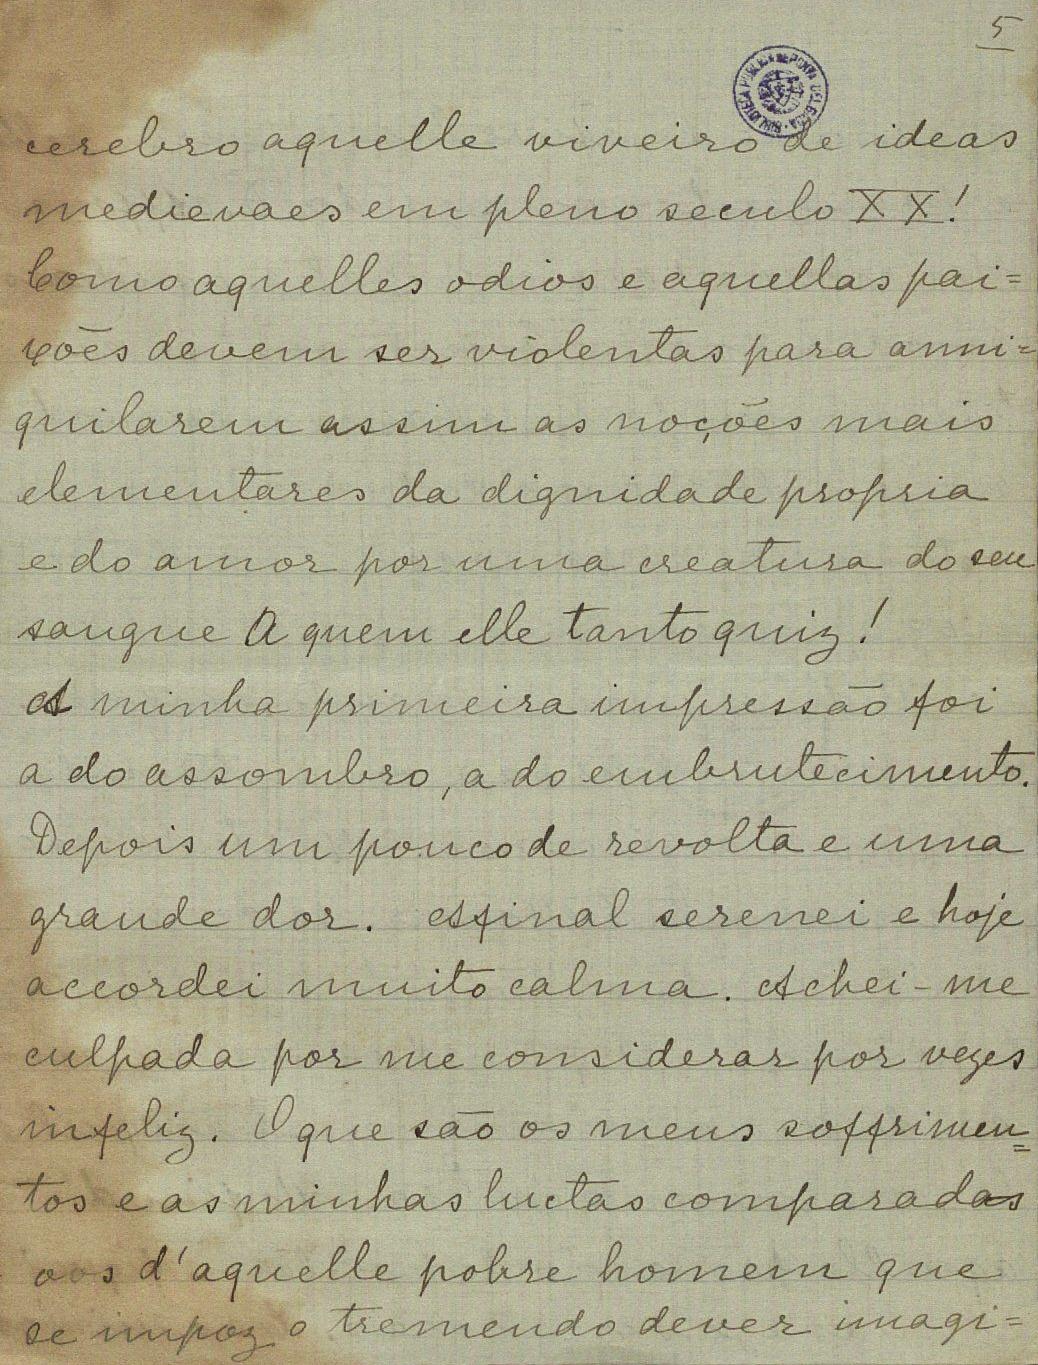 5
BIBLIOTECA PUBLICA DE PONTA DELGADA
cerebro aquelle viveiro de ideas
medievaes em pleno seculo XX!
Como aquelles odios e aquellas pai=
xões devem ser violentas para anni=
quilarem assim as noções mais
elementares da dignidade propria
e do amor por uma creatura do seu
sangue A quem elle tanto quiz!
A minha primeira impressão foi
a do assombro, a do embrutecimento.
Depois um pouco de revolta e uma
grande dor. Afinal serenei e hoje
accordei muito calma. Achei-me
culpada por me considerar por vezes
infeliz. O que são os meus soffrimen=
tos e as minhas luctas comparadas
aos d'aquelle pobre homem que
se impoz o tremendo dever imagi=